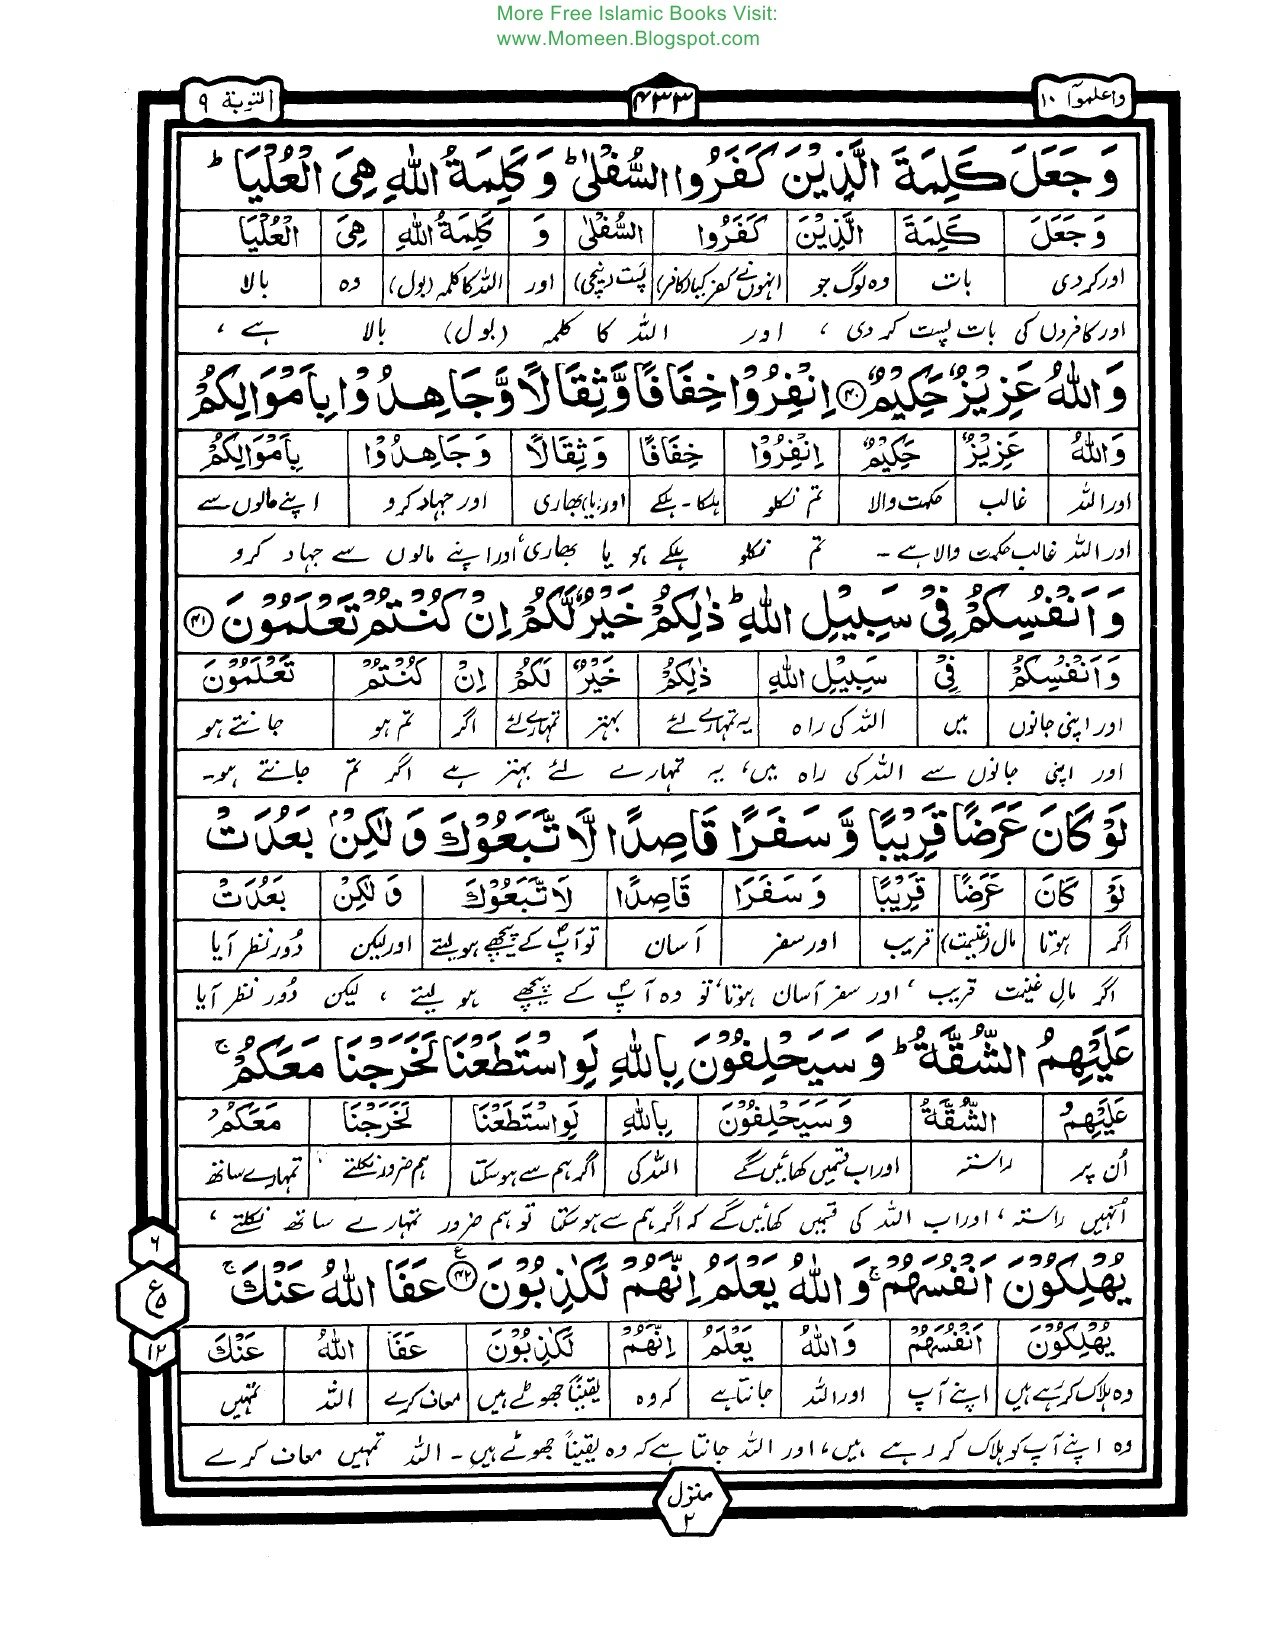 More Free Islamic Books Visit:
www.Momeen.Blogspot.com
واعلموآ ۱۰
۴۳۳
التوبة ۹
وَجَعَلَ كَلِمَةَ الَّذِيْنَ كَفَرُوا السُّفْلٰىؕ وَكَلِمَةُ اللّٰهِ هِىَ الْعُلْيَاؕ
وَجَعَلَ كَلِمَةَ الَّذِيْنَ كَفَرُوا السُّفْلٰى وَ كَلِمَةُ اللّٰهِ هِىَ الْعُلْيَا
اور کردی بات وہ لوگ جو انہوں نے کفر کیا (کافر) پست (نیچی) اور اللہ کا کلمہ (بول) وہ بالا
اور کافروں کی بات پست کر دی ، اور اللہ کا کلمہ (بول) بالا ہے ،
وَاللّٰهُ عَزِيْزٌ حَكِيْمٌ ۴۰ اِنْفِرُوْا خِفَافًا وَّثِقَالًا وَّجَاهِدُوْا بِاَمْوَالِكُمْ
وَاللّٰهُ عَزِيْزٌ حَكِيْمٌ اِنْفِرُوْا خِفَافًا وَثِقَالًا وَجَاهِدُوْا بِاَمْوَالِكُمْ
اور اللہ غالب حکمت والا تم نکلو ہلکا - ہلکے اور (یا) بھاری اور جہاد کرو اپنے مالوں سے
اور اللہ غالب حکمت والا ہے - تم نکلو ہلکے ہو یا بھاری، اور اپنے مالوں سے جہاد کرو
وَاَنْفُسِكُمْ فِىْ سَبِيْلِ اللّٰهِؕ ذٰلِكُمْ خَيْرٌ لَّكُمْ اِنْ كُنْتُمْ تَعْلَمُوْنَ ۴۱
وَاَنْفُسِكُمْ فِىْ سَبِيْلِ اللّٰهِ ذٰلِكُمْ خَيْرٌ لَكُمْ اِنْ كُنْتُمْ تَعْلَمُوْنَ
اور اپنی جانوں میں اللہ کی راہ یہ تمہارے لئے بہتر تمہارے لئے اگر تم ہو جانتے ہو
اور اپنی جانوں سے اللہ کی راہ میں، یہ تمہارے لئے بہتر ہے اگر تم جانتے ہو-
لَوْ كَانَ عَرَضًا قَرِيْبًا وَّسَفَرًا قَاصِدًا لَّاتَّبَعُوْكَ وَلٰكِنْۢ بَعُدَتْ
لَوْ كَانَ عَرَضًا قَرِيْبًا وَسَفَرًا قَاصِدًا لَاتَّبَعُوْكَ وَلٰكِنْ بَعُدَتْ
اگر ہوتا مال (غنیمت) قریب اور سفر آسان تو آپؐ کے پیچھے ہو لیتے اور لیکن دُور نظر آیا
اگر مالِ غنیمت قریب ، اور سفر آسان ہوتا، تو وہ آپؐ کے پیچھے ہو لیتے ، لیکن دُور نظر آیا
عَلَيْهِمُ الشُّقَّةُؕ وَسَيَحْلِفُوْنَ بِاللّٰهِ لَوِاسْتَطَعْنَا لَخَرَجْنَا مَعَكُمْۚ
عَلَيْهِمُ الشُّقَّةُ وَسَيَحْلِفُوْنَ بِاللّٰهِ لَوِاسْتَطَعْنَا لَخَرَجْنَا مَعَكُمْ
اُن پر راستہ اور اب قسمیں کھائیں گے اللہ کی اگر ہم سے ہو سکتا ہم ضرور نکلتے تمہارے ساتھ
اُنہیں راستہ ، اور اب اللہ کی قسمیں کھائیں گے کہ اگر ہم سے ہو سکتا تو ہم ضرور تمہارے ساتھ نکلتے ،
يُهْلِكُوْنَ اَنْفُسَهُمْۚ وَاللّٰهُ يَعْلَمُ اِنَّهُمْ لَكٰذِبُوْنَ ۴۲ ع عَفَا اللّٰهُ عَنْكَۚ
يُهْلِكُوْنَ اَنْفُسَهُمْ وَاللّٰهُ يَعْلَمُ اِنَّهُمْ لَكٰذِبُوْنَ عَفَا اللّٰهُ عَنْكَ
وہ ہلاک کر رہے ہیں اپنے آپ اور اللہ جانتا ہے کہ وہ یقیناً جھوٹے ہیں معاف کرے اللہ تمہیں
وہ اپنے آپ کو ہلاک کر رہے ہیں، اور اللہ جانتا ہے کہ وہ یقیناً جھوٹے ہیں - اللہ تمہیں معاف کرے
۶
ع ۵
۱۲
منزل
۲